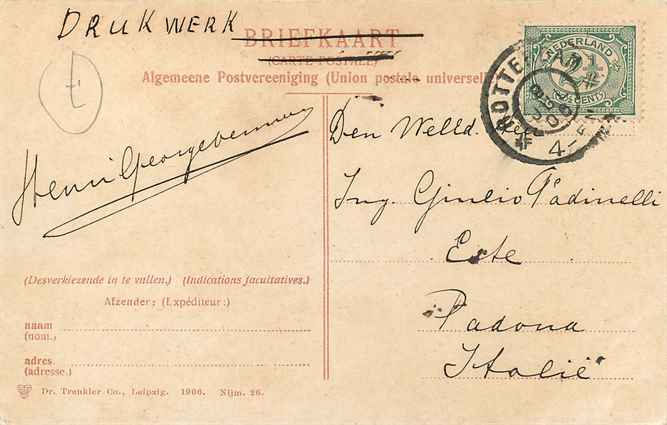 DRUKWERK
BRIEFKAART
(CARTE POSTALE)
Algemeene Postvereeniging (Union postale universelle)
NEDERLAND
2½ CENT
ROTTERDAM
4
t
Henri
Den Welled. Heer
Ing. Giulio Padinelli
Este
Padova
Italië
(Desverkiezende in te vullen.) (Indications facultatives.)
Afzender: (Expéditeur:)
naam
(nom.)
adres
(adresse.)
Dr. Trenkler Co., Leipzig. 1906. Nijm. 26.